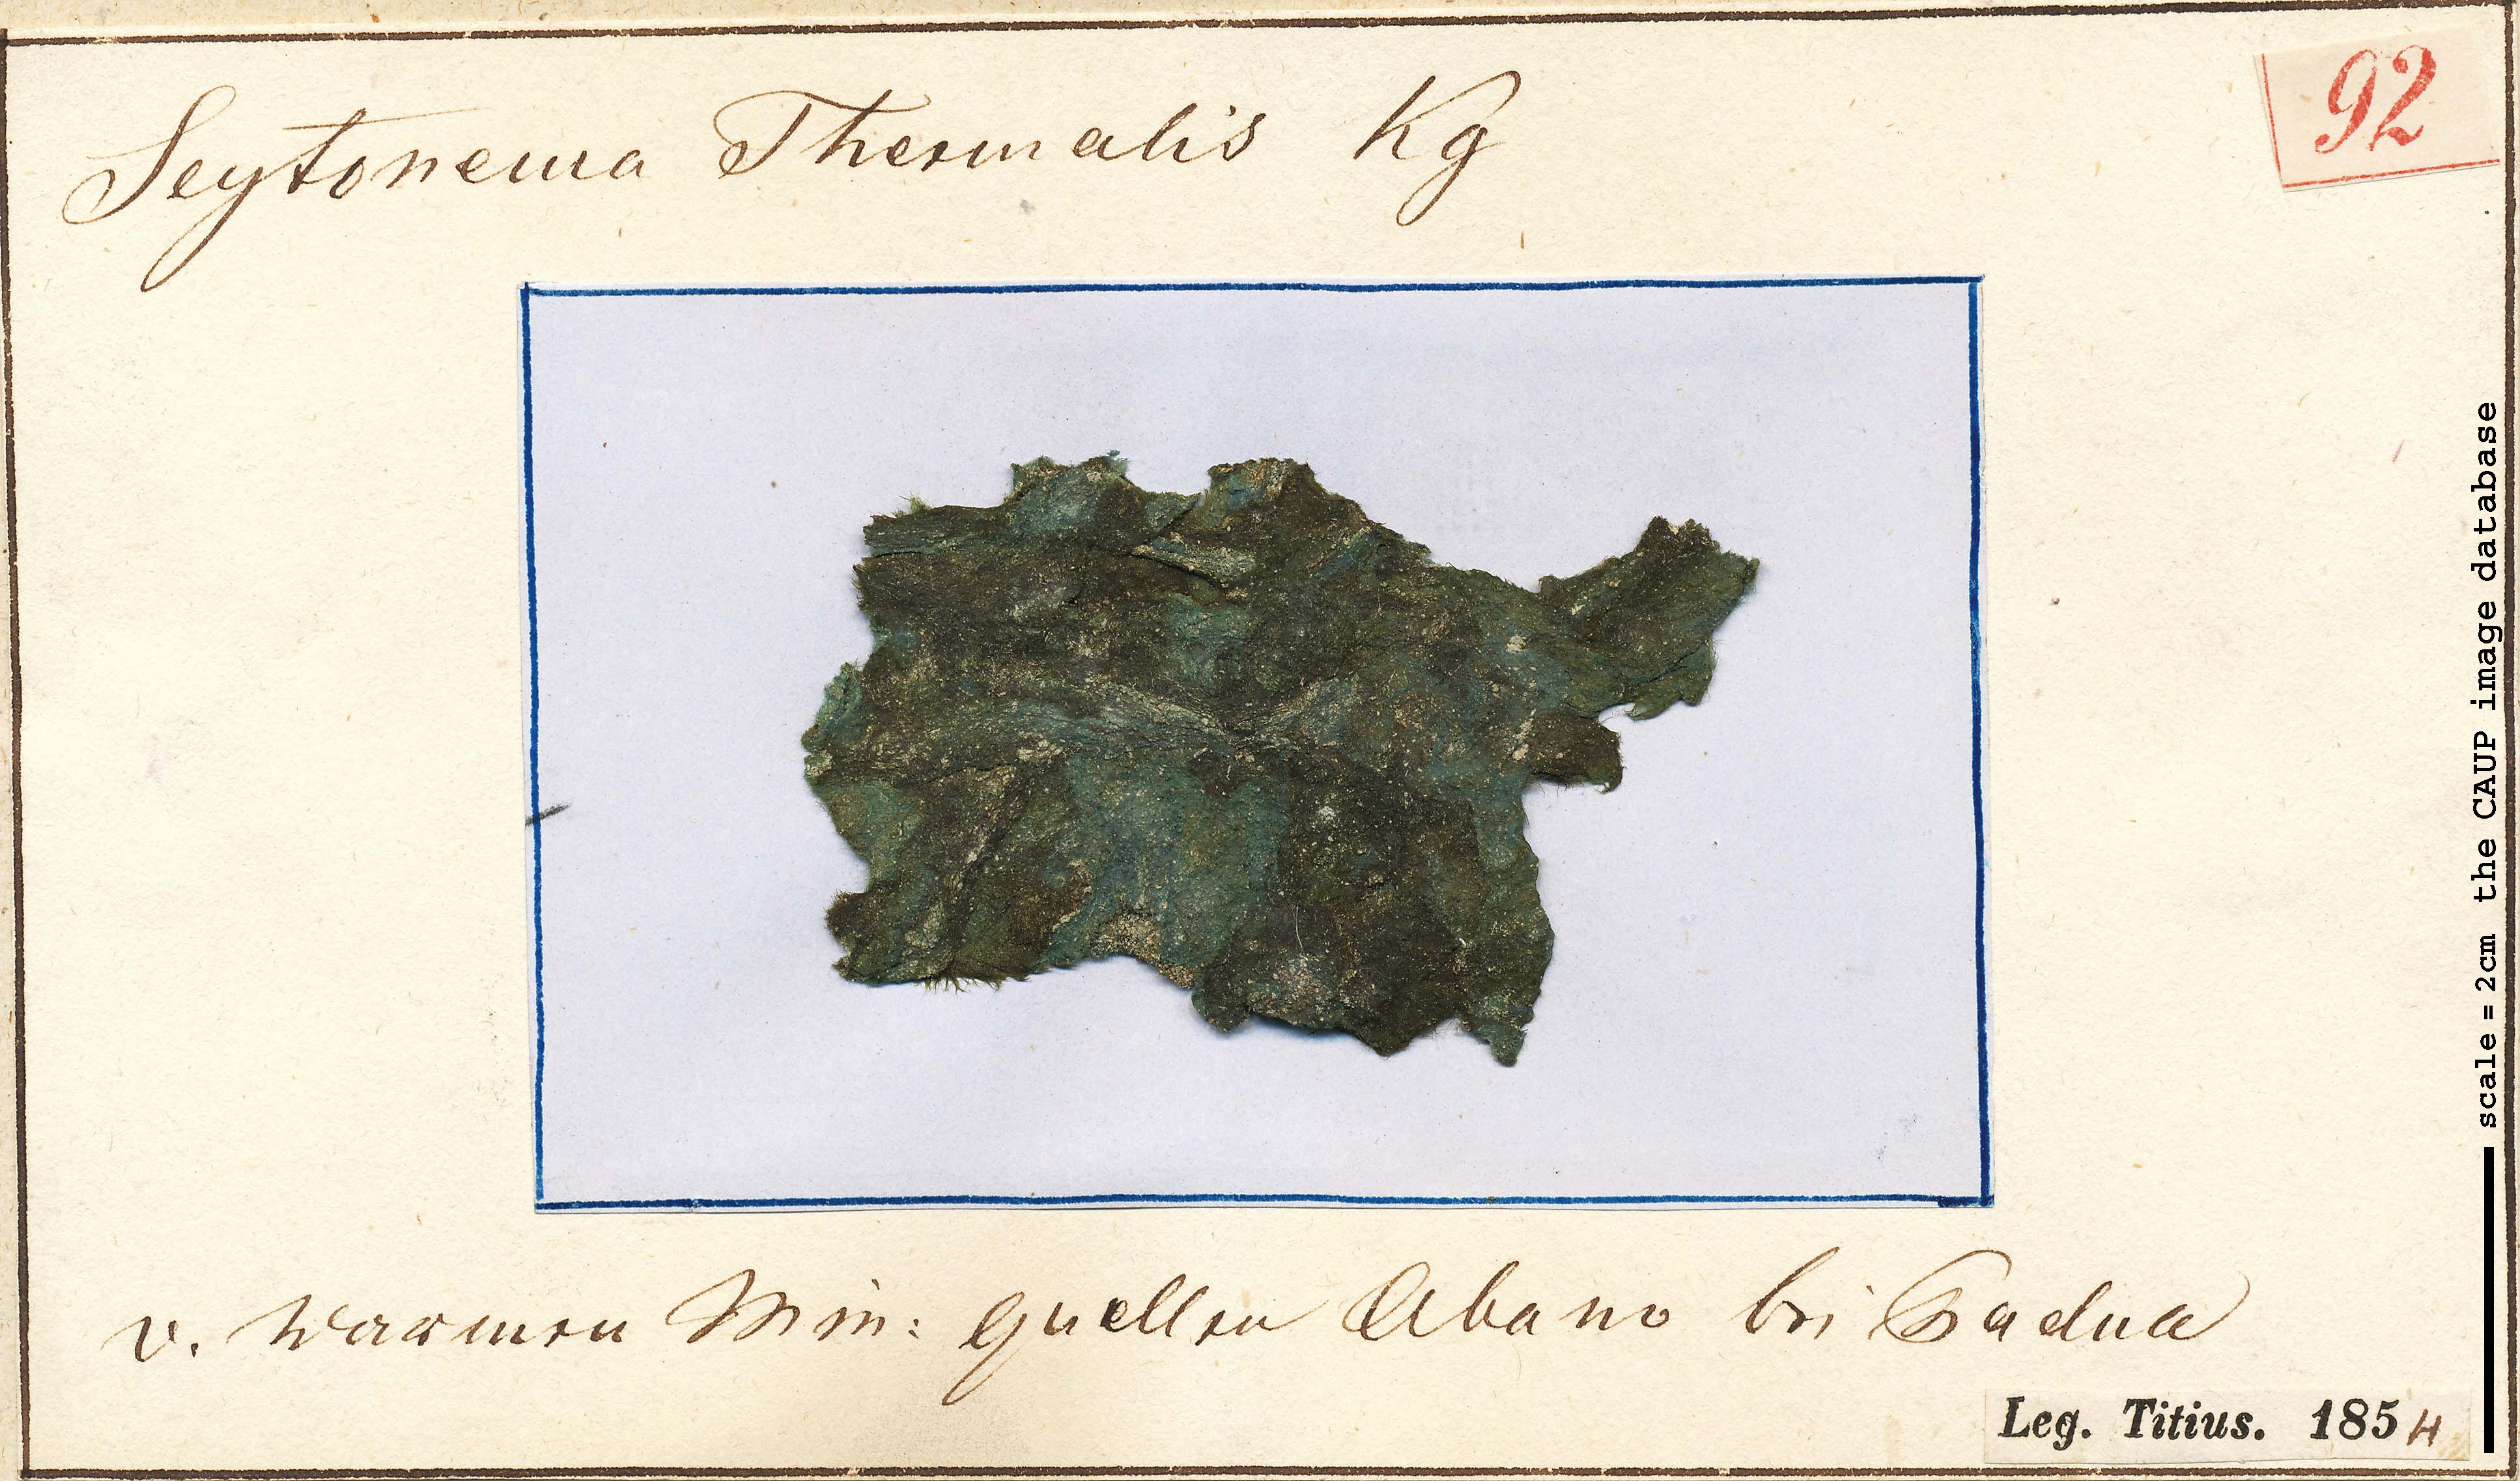 Scytonema Thermalis Kg
92
v. warmen Min: quellen Abano bei Padua
Leg. Titius. 1854
scale = 2cm the CAUP image database